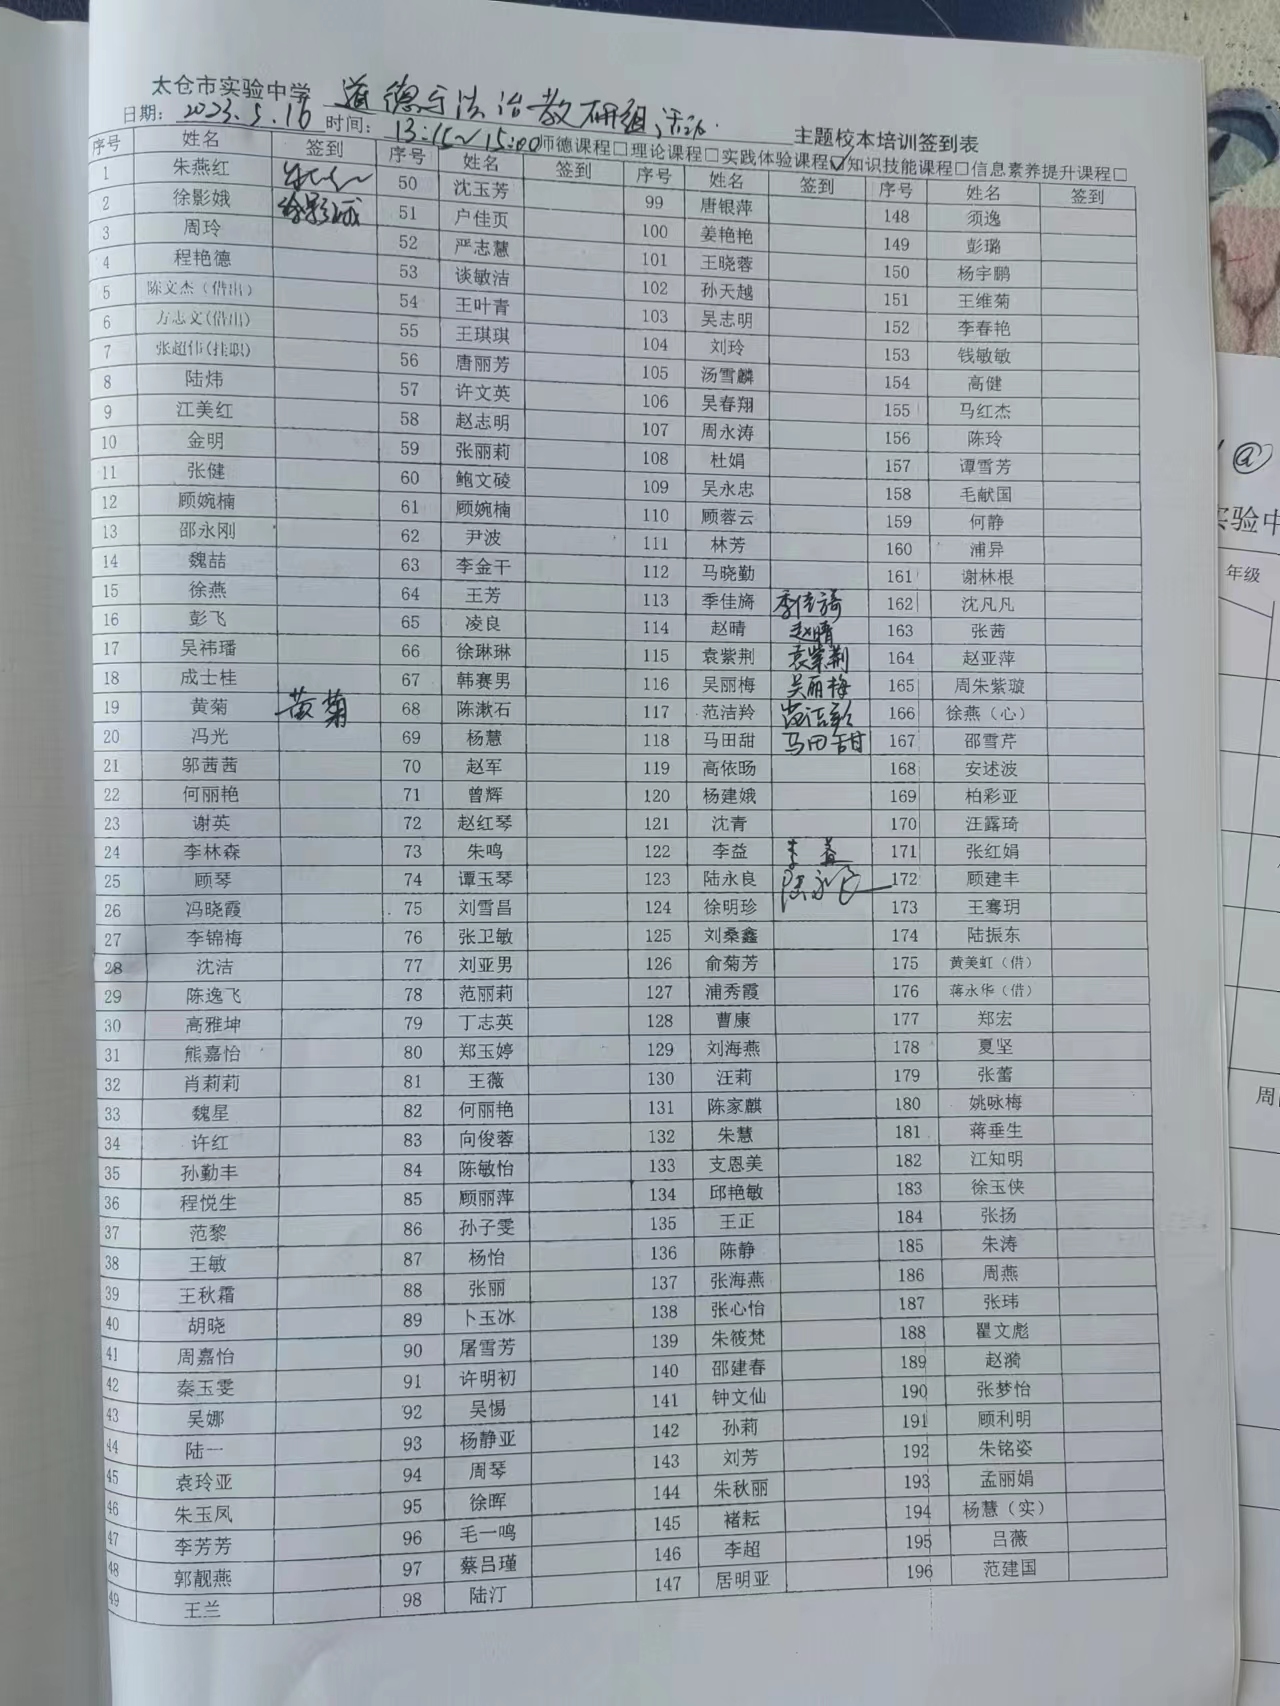 太仓市实验中学 道德与法治教研组活动 主题校本培训签到表
日期：2023.5.16 时间：13:15~15:00 师德课程□理论课程□实践体验课程☑知识技能课程□信息素养提升课程□
序号 姓名 签到 序号 姓名 签到 序号 姓名 签到 序号 姓名 签到
1 朱燕红 50 沈玉芳 99 唐银萍 148 须逸
2 徐影娥 徐影娥 51 户佳页 100 姜艳艳 149 彭璐
3 周玲 52 严志慧 101 王晓蓉 150 杨宇鹏
4 程艳德 53 谈敏洁 102 孙天越 151 王维菊
5 陈文杰（借出） 54 王叶青 103 吴志明 152 李春艳
6 方志文(借出) 55 王琪琪 104 刘玲 153 钱敏敏
7 张超伟(挂职) 56 唐丽芳 105 汤雪麟 154 高健
8 陆炜 57 许文英 106 吴春翔 155 马红杰
9 江美红 58 赵志明 107 周永涛 156 陈玲
10 金明 59 张丽莉 108 杜娟 157 谭雪芳
11 张健 60 鲍文碐 109 吴永忠 158 毛献国
12 顾婉楠 61 顾婉楠 110 顾蓉云 159 何静
13 邵永刚 62 尹波 111 林芳 160 浦异
14 魏喆 63 李金干 112 马晓勤 161 谢林根
15 徐燕 64 王芳 113 季佳旖 季佳旖 162 沈凡凡
16 彭飞 65 凌良 114 赵晴 赵晴 163 张茜
17 吴祎璠 66 徐琳琳 115 袁紫荆 袁紫荆 164 赵亚萍
18 成士桂 67 韩赛男 116 吴丽梅 吴丽梅 165 周朱紫璇
19 黄菊 黄菊 68 陈漱石 117 范洁羚 范洁羚 166 徐燕（心）
20 冯光 69 杨慧 118 马田甜 马田甜 167 邵雪芹
21 邬茜茜 70 赵军 119 高依旸 168 安述波
22 何丽艳 71 曾辉 120 杨建娥 169 柏彩亚
23 谢英 72 赵红琴 121 沈青 170 汪露琦
24 李林森 73 朱鸣 122 李益 李益 171 张红娟
25 顾琴 74 谭玉琴 123 陆永良 陆永良 172 顾建丰
26 冯晓霞 75 刘雪昌 124 徐明珍 173 王骞玥
27 李锦梅 76 张卫敏 125 刘桑鑫 174 陆振东
28 沈洁 77 刘亚男 126 俞菊芳 175 黄美虹（借）
29 陈逸飞 78 范丽莉 127 浦秀霞 176 蒋永华（借）
30 高雅坤 79 丁志英 128 曹康 177 郑宏
31 熊嘉怡 80 郑玉婷 129 刘海燕 178 夏坚
32 肖莉莉 81 王薇 130 汪莉 179 张蕾
33 魏星 82 何丽艳 131 陈家麒 180 姚咏梅
34 许红 83 向俊蓉 132 朱慧 181 蒋垂生
35 孙勤丰 84 陈敏怡 133 支恩美 182 江知明
36 程悦生 85 顾丽萍 134 邱艳敏 183 徐玉侠
37 范黎 86 孙子雯 135 王正 184 张扬
38 王敏 87 杨怡 136 陈静 185 朱涛
39 王秋霜 88 张丽 137 张海燕 186 周燕
40 胡晓 89 卜玉冰 138 张心怡 187 张玮
41 周嘉怡 90 屠雪芳 139 朱筱梵 188 瞿文彪
42 秦玉雯 91 许明初 140 邵建春 189 赵漪
43 吴娜 92 吴惕 141 钟文仙 190 张梦怡
44 陆一 93 杨静亚 142 孙莉 191 顾利明
45 袁玲亚 94 周琴 143 刘芳 192 朱铭姿
46 朱玉凤 95 徐晖 144 朱秋丽 193 孟丽娟
47 李芳芳 96 毛一鸣 145 褚耘 194 杨慧（实）
48 郭靓燕 97 蔡吕瑾 146 李超 195 吕薇
49 王兰 98 陆汀 147 居明亚 196 范建国
实验中
年级
周